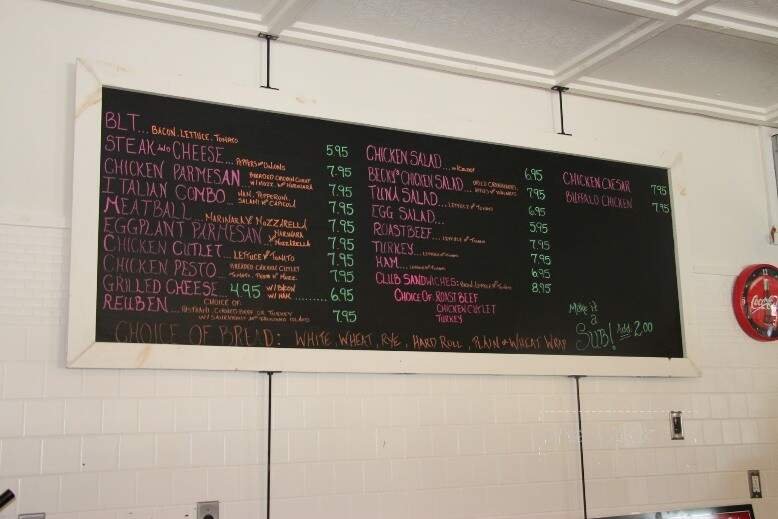 BLT... BACON, LETTUCE, TOMATO 5.95
STEAK AND CHEESE... PEPPERS ONIONS 7.95
CHICKEN PARMESAN BREADED CHICKEN CUTLET W/ MOZZ. MARINARA 7.95
ITALIAN COMBO... HAM, PEPPERONI, SALAMI CAPICOLA 7.95
MEATBALL... MARINARA MOZZARELLA 7.95
EGGPLANT PARMESAN... MARINARA MOZZARELLA 7.95
CHICKEN CUTLET... LETTUCE TOMATO 7.95
CHICKEN PESTO... BREADED CHICKEN CUTLET 7.95
GRILLED CHEESE 4.95 W/ BACON W/ HAM ......... 6.95
REUBEN... CHOICE OF: PASTRAMI, CORNED BEEF OR TURKEY 7.95
CHICKEN SALAD... 6.95
BECKY'S CHICKEN SALAD... 7.95
TUNA SALAD... LETTUCE TOMATO 6.95
EGG SALAD... 5.95
ROASTBEEF... LETTUCE TOMATO 7.95
TURKEY... LETTUCE TOMATO 7.95
HAM... LETTUCE TOMATO 6.95
CLUB SANDWICHES: BACON, LETTUCE TOMATO 8.95
CHOICE OF ROAST BEEF
CHICKEN CUTLET
TURKEY
CHICKEN CAESAR 7.95
BUFFALO CHICKEN 7.95
MAKE it
a
SUB! Add 2.00
CHOICE OF BREAD: WHITE, WHEAT, RYE, HARD ROLL, PLAIN or WHEAT WRAP
Coca-Cola